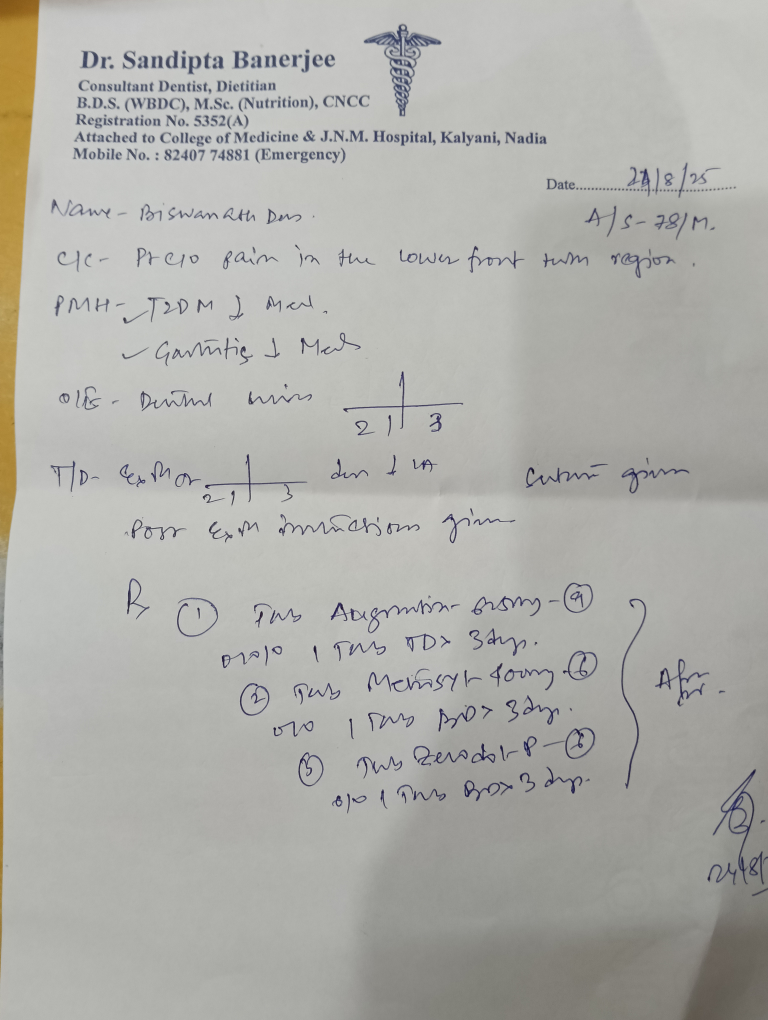 Dr. Sandipta Banerjee
Consultant Dentist, Dietitian
B.D.S. (WBDC), M.Sc. (Nutrition), CNCC
Registration No. 5352(A)
Attached to College of Medicine & J.N.M. Hospital, Kalyani, Nadia
Mobile No. : 82407 74881 (Emergency)
Date 24/8/25
Name - Biswanath Das.
A/S - 78/M.
C/C - Pt c/o pain in the lower front region.
PMH - T2DM
Gastritis
O/E - Dental
2 1 3
T/D - Extn of 2 1 3 LA
Post Extn instructions given
Rx
① Tab Augmentin - ⑨
1 Tab TD x 3 days.
② Tab 400mg - ⑥
1 Tab BD x 3 days.
③ Tab Zerodol-P -
1 Tab BD x 3 days.